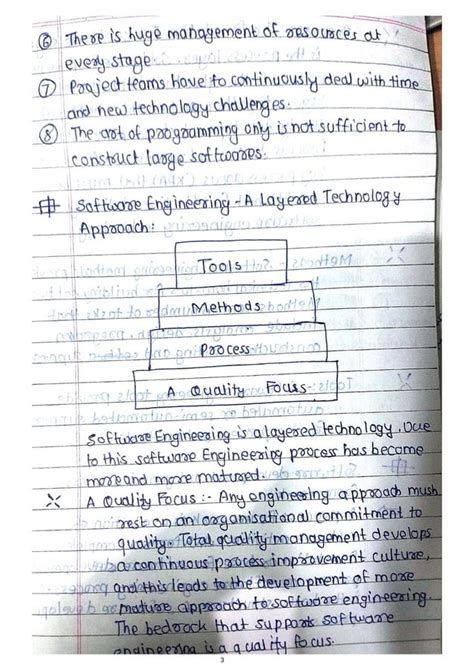 ⑥ There is huge management of resources at
every stage.
⑦ Project teams have to continuously deal with time
and new technology challenges.
⑧ The art of programming only is not sufficient to
construct large softwares.
Software Engineering - A Layered Technology
Approach:
Tools
Methods
Process
A Quality Focus
Software Engineering is a layered technology. Due
to this software Engineering process has become
more and more matured.
A Quality Focus :- Any engineering approach must
rest on an organisational commitment to
quality. Total quality management develops
a continuous process improvement culture,
and this leads to the development of more
mature approach to software engineering.
The bedrock that supports software
engineering is a quality focus.
3